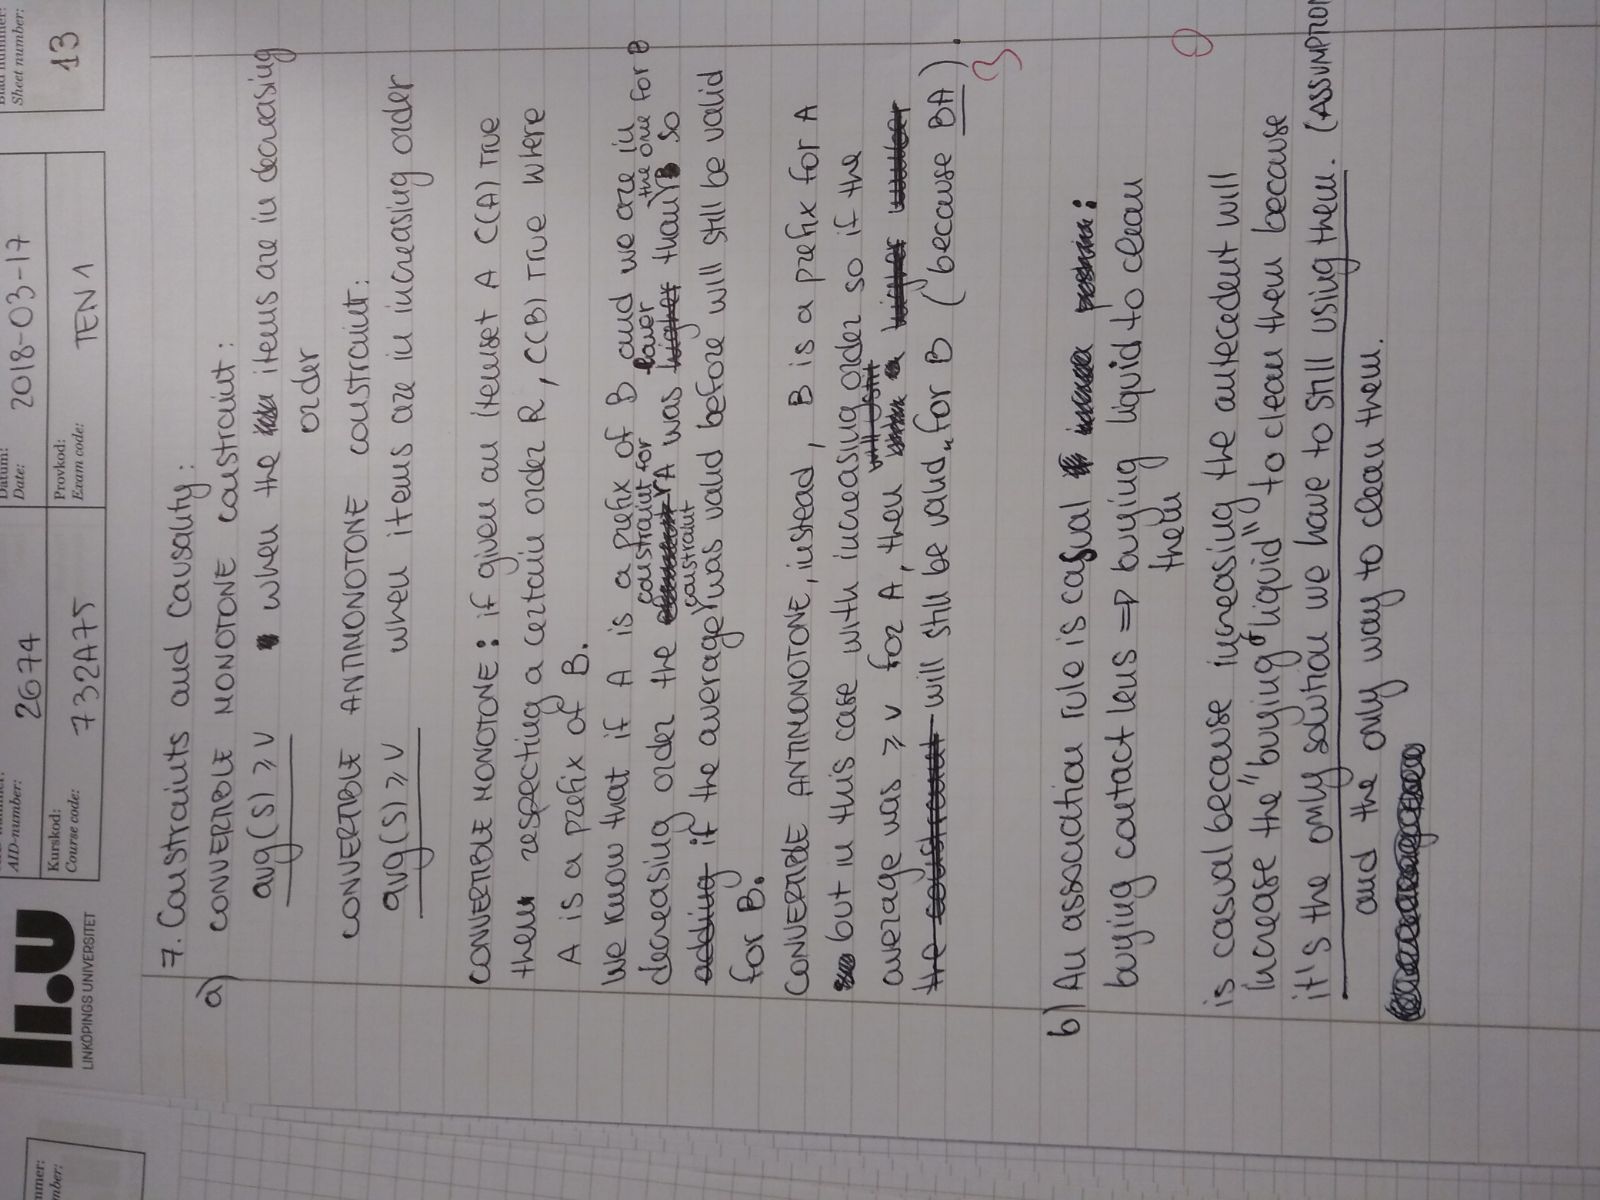 mmer:
mber:
LiU
LINKÖPINGS UNIVERSITET
AID-number:
2674
Datum:
Date:
2018-03-17
Blad nummer:
Sheet number:
13
Kurskod:
Course code:
732A75
Provkod:
Exam code:
TEN 1
7. Constraints and Causality:
a) CONVERTIBLE MONOTONE constraint:
avg(S) ≥ v when the items are in decreasing
order
CONVERTIBLE ANTIMONOTONE constraint:
avg(S) ≥ v when items are in increasing order
CONVERTIBLE MONOTONE: if given an itemset A C(A) TRUE
then respecting a certain order R, C(B) TRUE where
A is a prefix of B.
We know that if A is a prefix of B and we are in
constraint for lower the one for B
decreasing order the A was higher than B so
constraint
adding if the average was valid before will still be valid
for B.
CONVERTIBLE ANTIMONOTONE, instead, B is a prefix for A
but in this case with increasing order so if the
will still
average was ≥ v for A, then a higher number
the constraint will still be valid for B (because BA).
3
b) An association rule is casual :
buying contact lens ⇒ buying liquid to clean
them
0
is casual because increasing the antecedent will
increase the "buying of liquid" to clean them because
it's the only solution we have to still using them. (ASSUMPTION
and the only way to clean them.